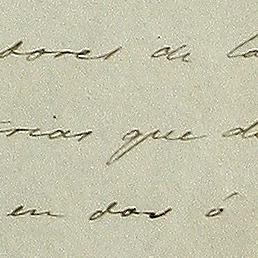 dores de la
rias que d
en dos ó